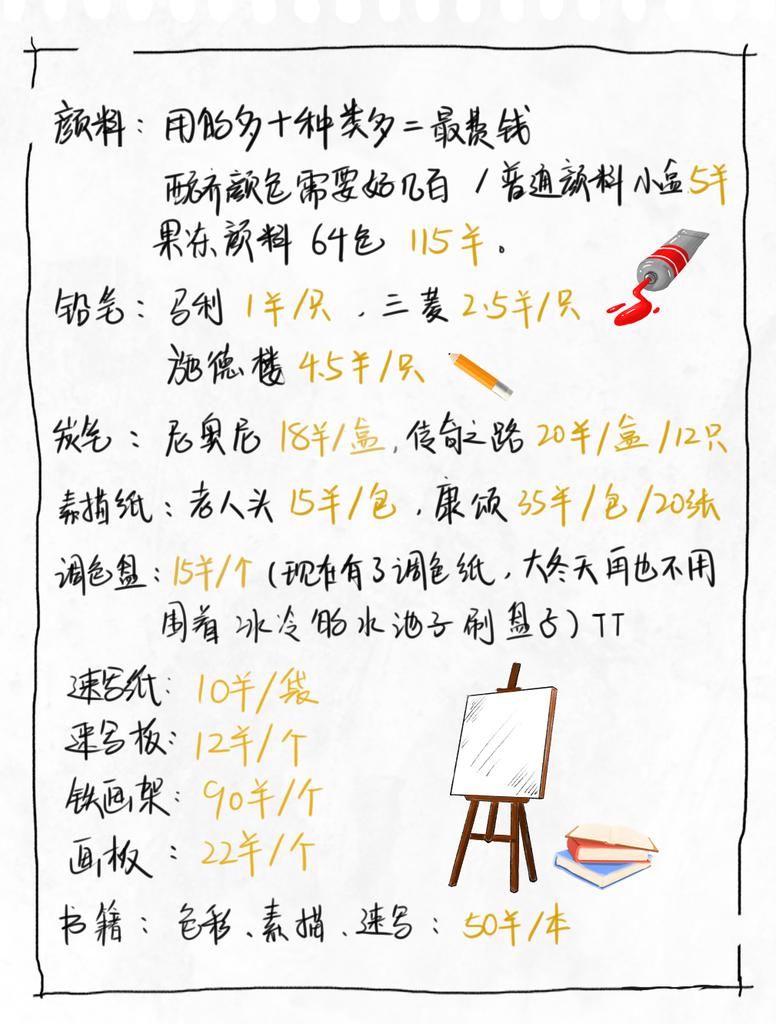 颜料：用的多+种类多=最费钱
配齐颜色需要好几百/普通颜料小盒5羊
果冻颜料64色 115羊。
铅笔：马利1羊/只、三菱2.5羊/只
施德楼4.5羊/只
炭笔：尼奥尼18羊/盒,传奇之路20羊/盒/12只
素描纸：老人头15羊/包、康颂35羊/包/20张
调色盘：15羊/个(现在有了调色纸,大冬天再也不用
围着冰冷的水池子刷盘了)TT
速写纸：10羊/袋
速写板：12羊/个
铁画架：90羊/个
画板：22羊/个
书籍：色彩、素描、速写：50羊/本